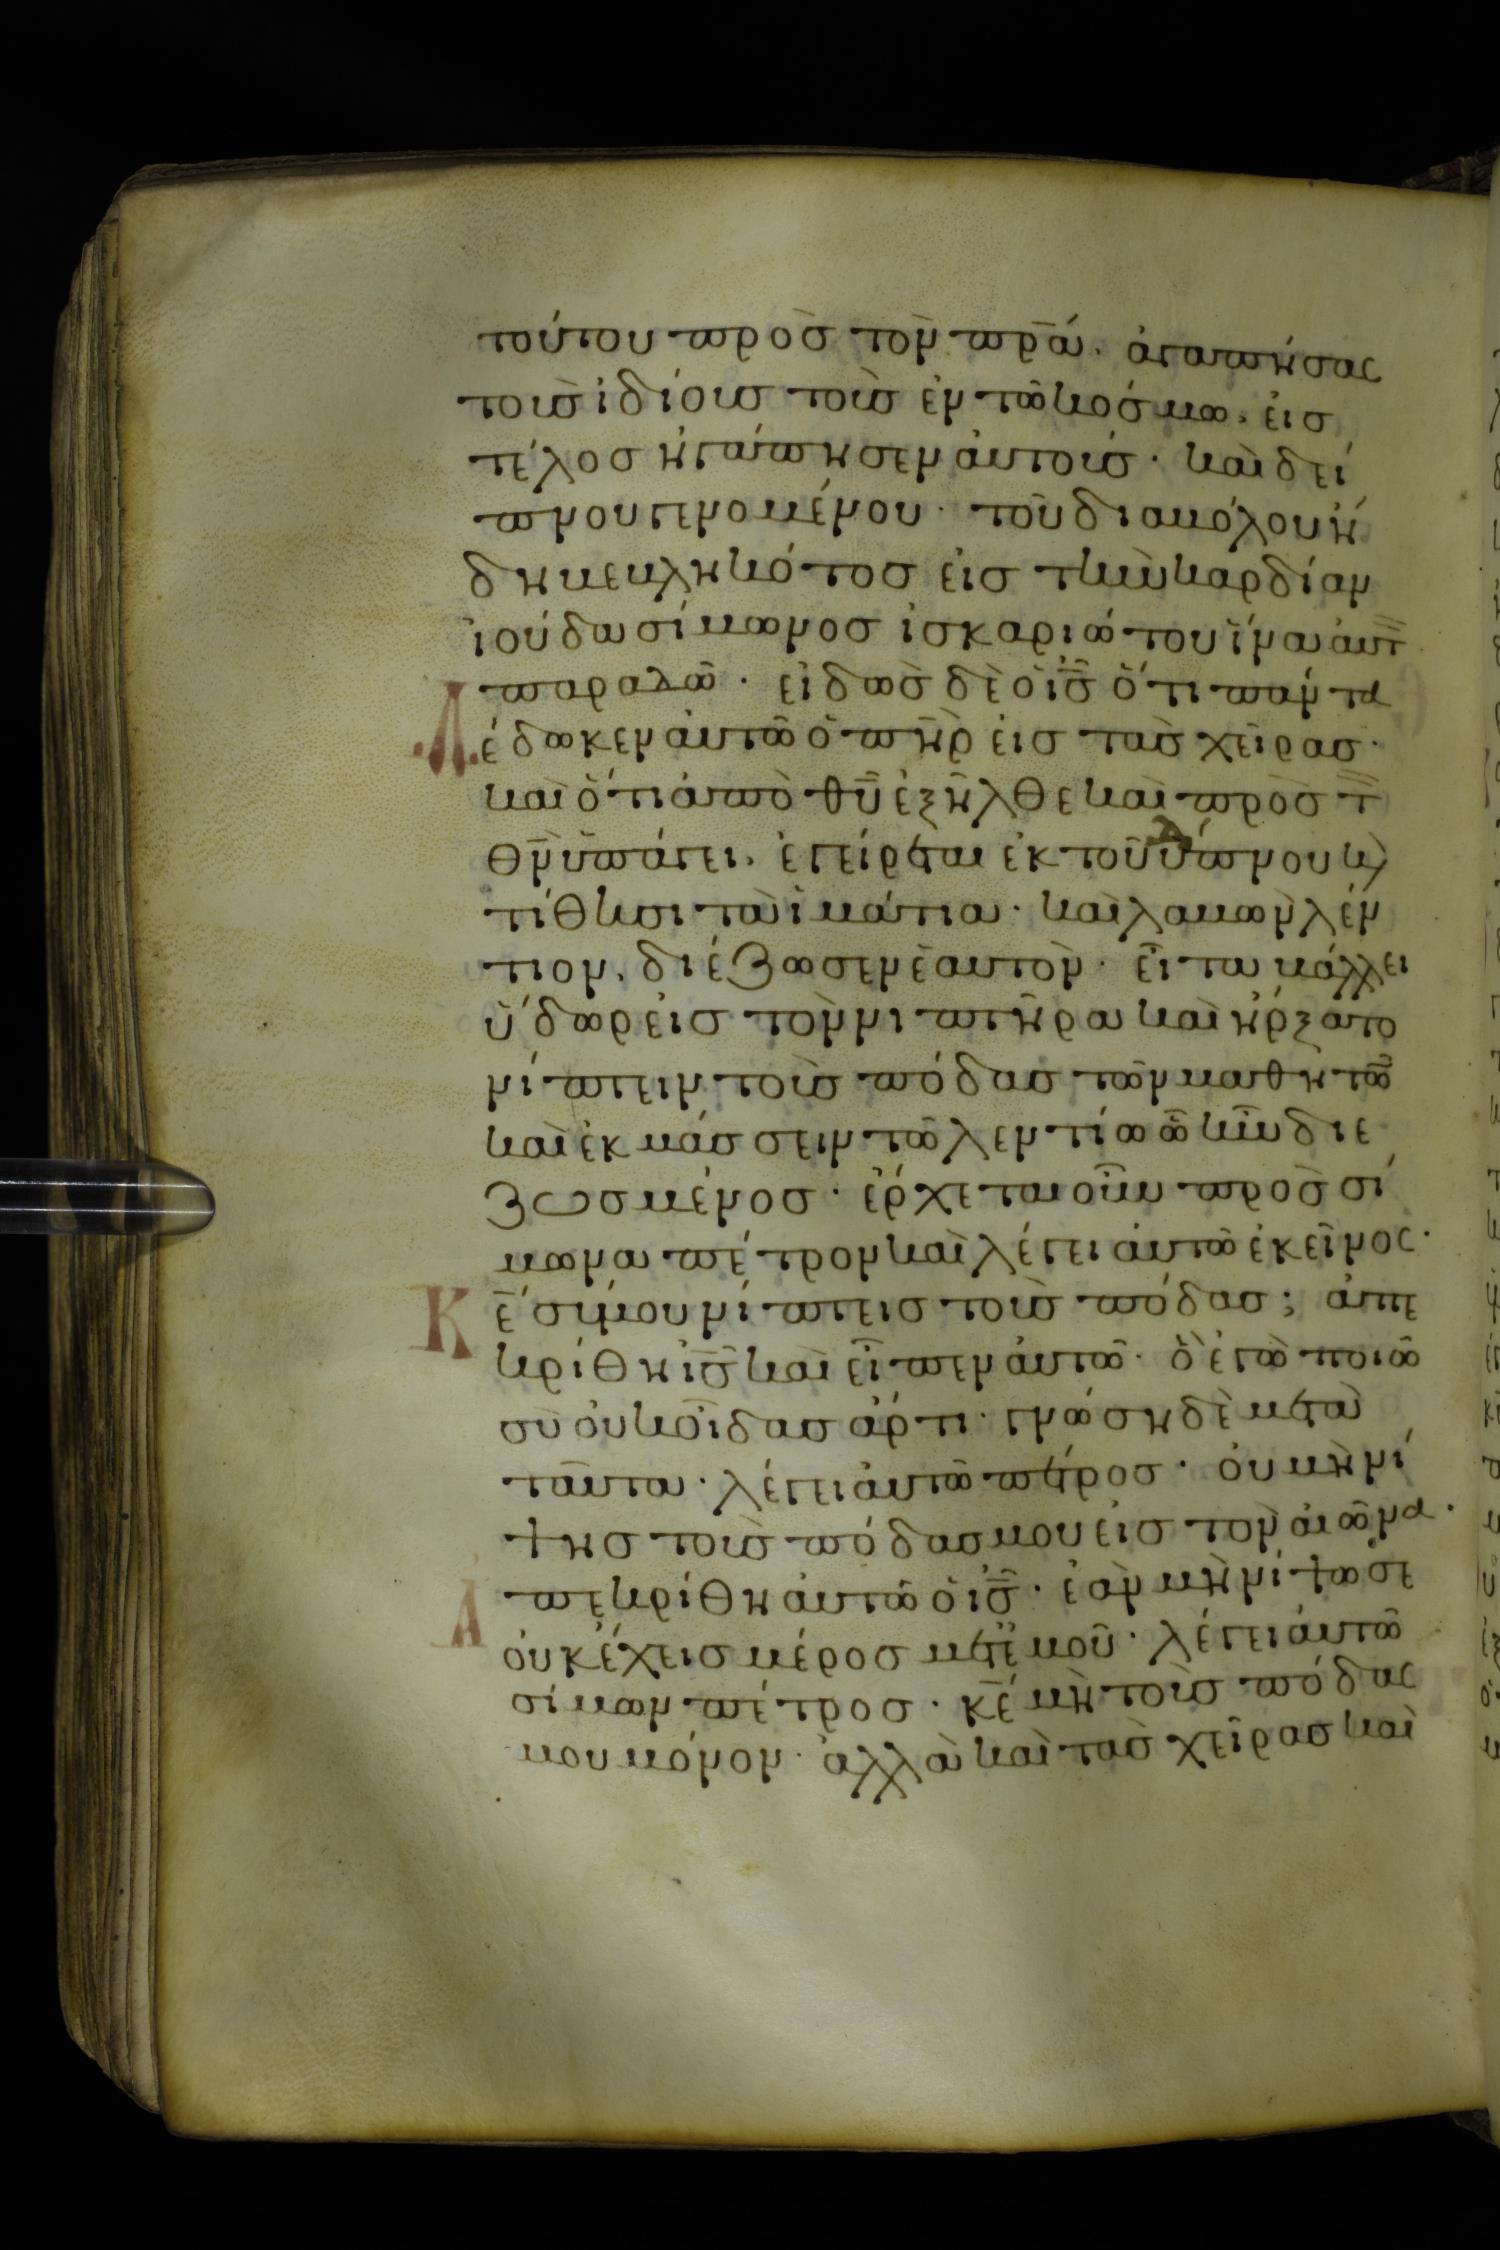 τούτου πρὸσ τὸν πρ̅ά. ἀγαπήσας
τοὺσ ἰδίουσ τοὺσ ἐν τῶ κόσμω, εἰσ
τέλοσ ἠγάπησεν ἀυτούσ· καὶ δεί
πνου γενομένου· τοῦ διαβόλου ἤ
δη βεβληκότοσ εἰσ τὴν καρδίαν
ἰούδα σίμωνοσ ἰσκαριώτου ἵνα ἀυτ̅
παραδῶ· εἰδὼσ δὲ ὁ ι̅σ̅ ὅτι πάντα
έδωκεν ἀυτῶ ὁ π̅η̅ρ εἰσ τὰσ χεῖρασ·
καὶ ὅτι ἀπὸ θ̅υ̅ ἐξῆλθε καὶ πρὸσ τ̅
θ̅ν̅ ὑπάγει, ἐγείρεται ἐκ τοῦ δείπνου κ
τίθησι τὰ ἱμάτια· καὶ λαβὼν λέν
τιον, διέζωσεν ἑαυτὸν· εἶτα βάλλει
ὕδωρ εἰσ τὸν νιπτῆρα καὶ ἤρξατο
νίπτειν τοὺσ πόδασ τῶν μαθητῶ
καὶ ἐκμάσσειν τῶ λεντίω ὧ ἦν διε
ζωσμένοσ· ἔρχεται οὖν πρὸσ σί
μωνα πέτρον καὶ λέγει ἀυτῶ ἐκεῖνος·
Κ̅ε̅́ σύ μου νίπτεισ τοὺσ πόδασ; ἀπε
κρίθη ι̅σ̅ καὶ εἶπεν ἀυτῶ· ὃ ἐγὼ ποιῶ
σὺ ὀυκ οἶδασ ἄρτι· γνώση δὲ μετὰ
ταῦτα· λέγει ἀυτῶ πέτροσ· ὀυ μὴ νί
ψησ τοὺσ πόδασ μου εἰσ τὸν ἀιῶνα·
Ἀπεκρίθη ἀυτῶ ὁ ι̅σ̅· ἐὰν μὴ νίψω σε
ὀυκ ἔχεισ μέροσ μετ ἐμοῦ· λέγει ἀυτῶ
σίμων πέτροσ· κ̅ε̅́ μὴ τοὺσ πόδας
μου μόνον· ἀλλὰ καὶ τὰσ χεῖρασ καὶ